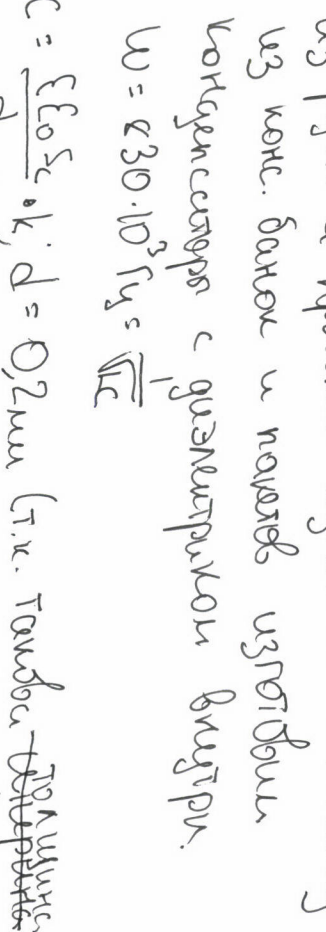 из конс. банок и пакетов изготовим
конденсаторы с диэлектриком внутри.
W = 830·10³ Гц = 1/√LC
C = εε₀S/d · k; d = 0,2мм (т.к. такова толщина